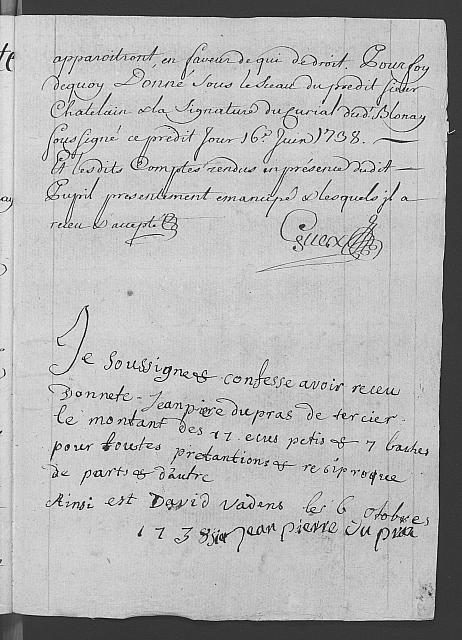 apparoitront, en faveur de qui de droit, Pour foy
dequoy Donné sous le sceau du predit sieur
Chatelain & la signature du Curial dud. Blonay
soussigné ce predit Jour 16.e Juin 1738. —
Et lesdits Comptes rendus en présence dudit —
Pupil presentement emancipé & lesquels jl a
receu & accepté
Cuex
Je soussigne & confesse avoir receu
Donnete Jeanpiere dupras de tercier
le montant des 17 ecus petis & 7 baches
pour toutes pretantions & resiproque
de parts & dautre
Ainsi est David Vadens les 6 otobres
1738 Jean pierre du praz